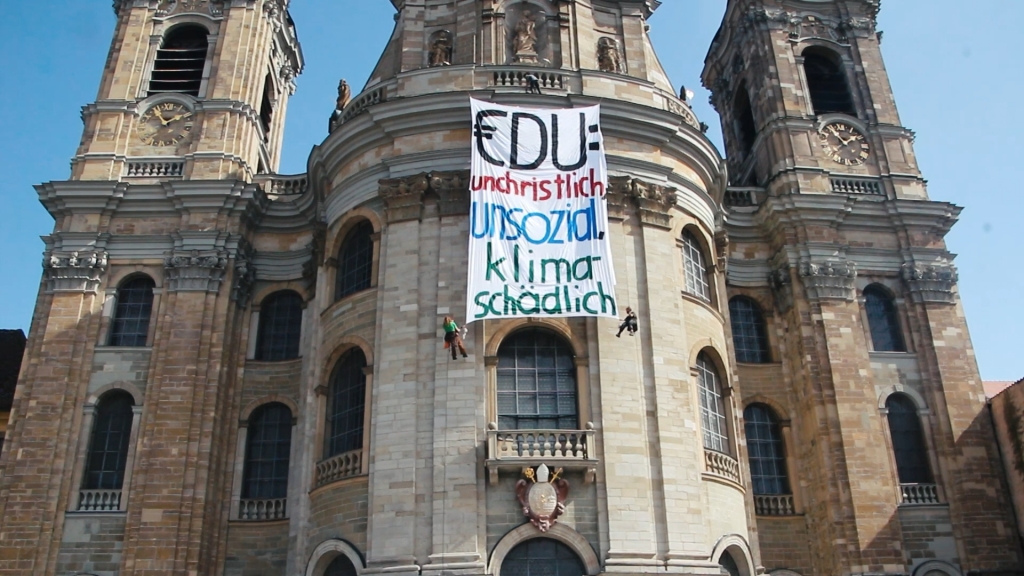 €DU:
unchristlich
unsozial,
klima-
schädlich